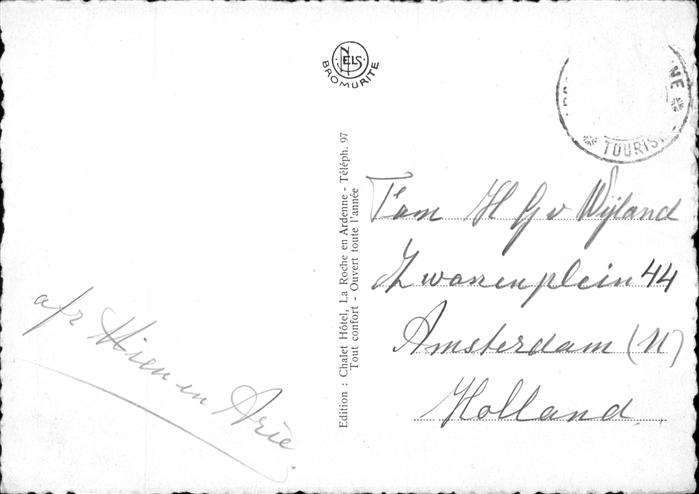 NELS
BROMURITE
NE
TOURIS
Edition : Chalet Hôtel, La Roche en Ardenne - Téléph. 97
Tout confort - Ouvert toute l'année
Fam H G v Wijland
Zwanenplein 44
Amsterdam (N)
Holland
afz Mien en Arie.